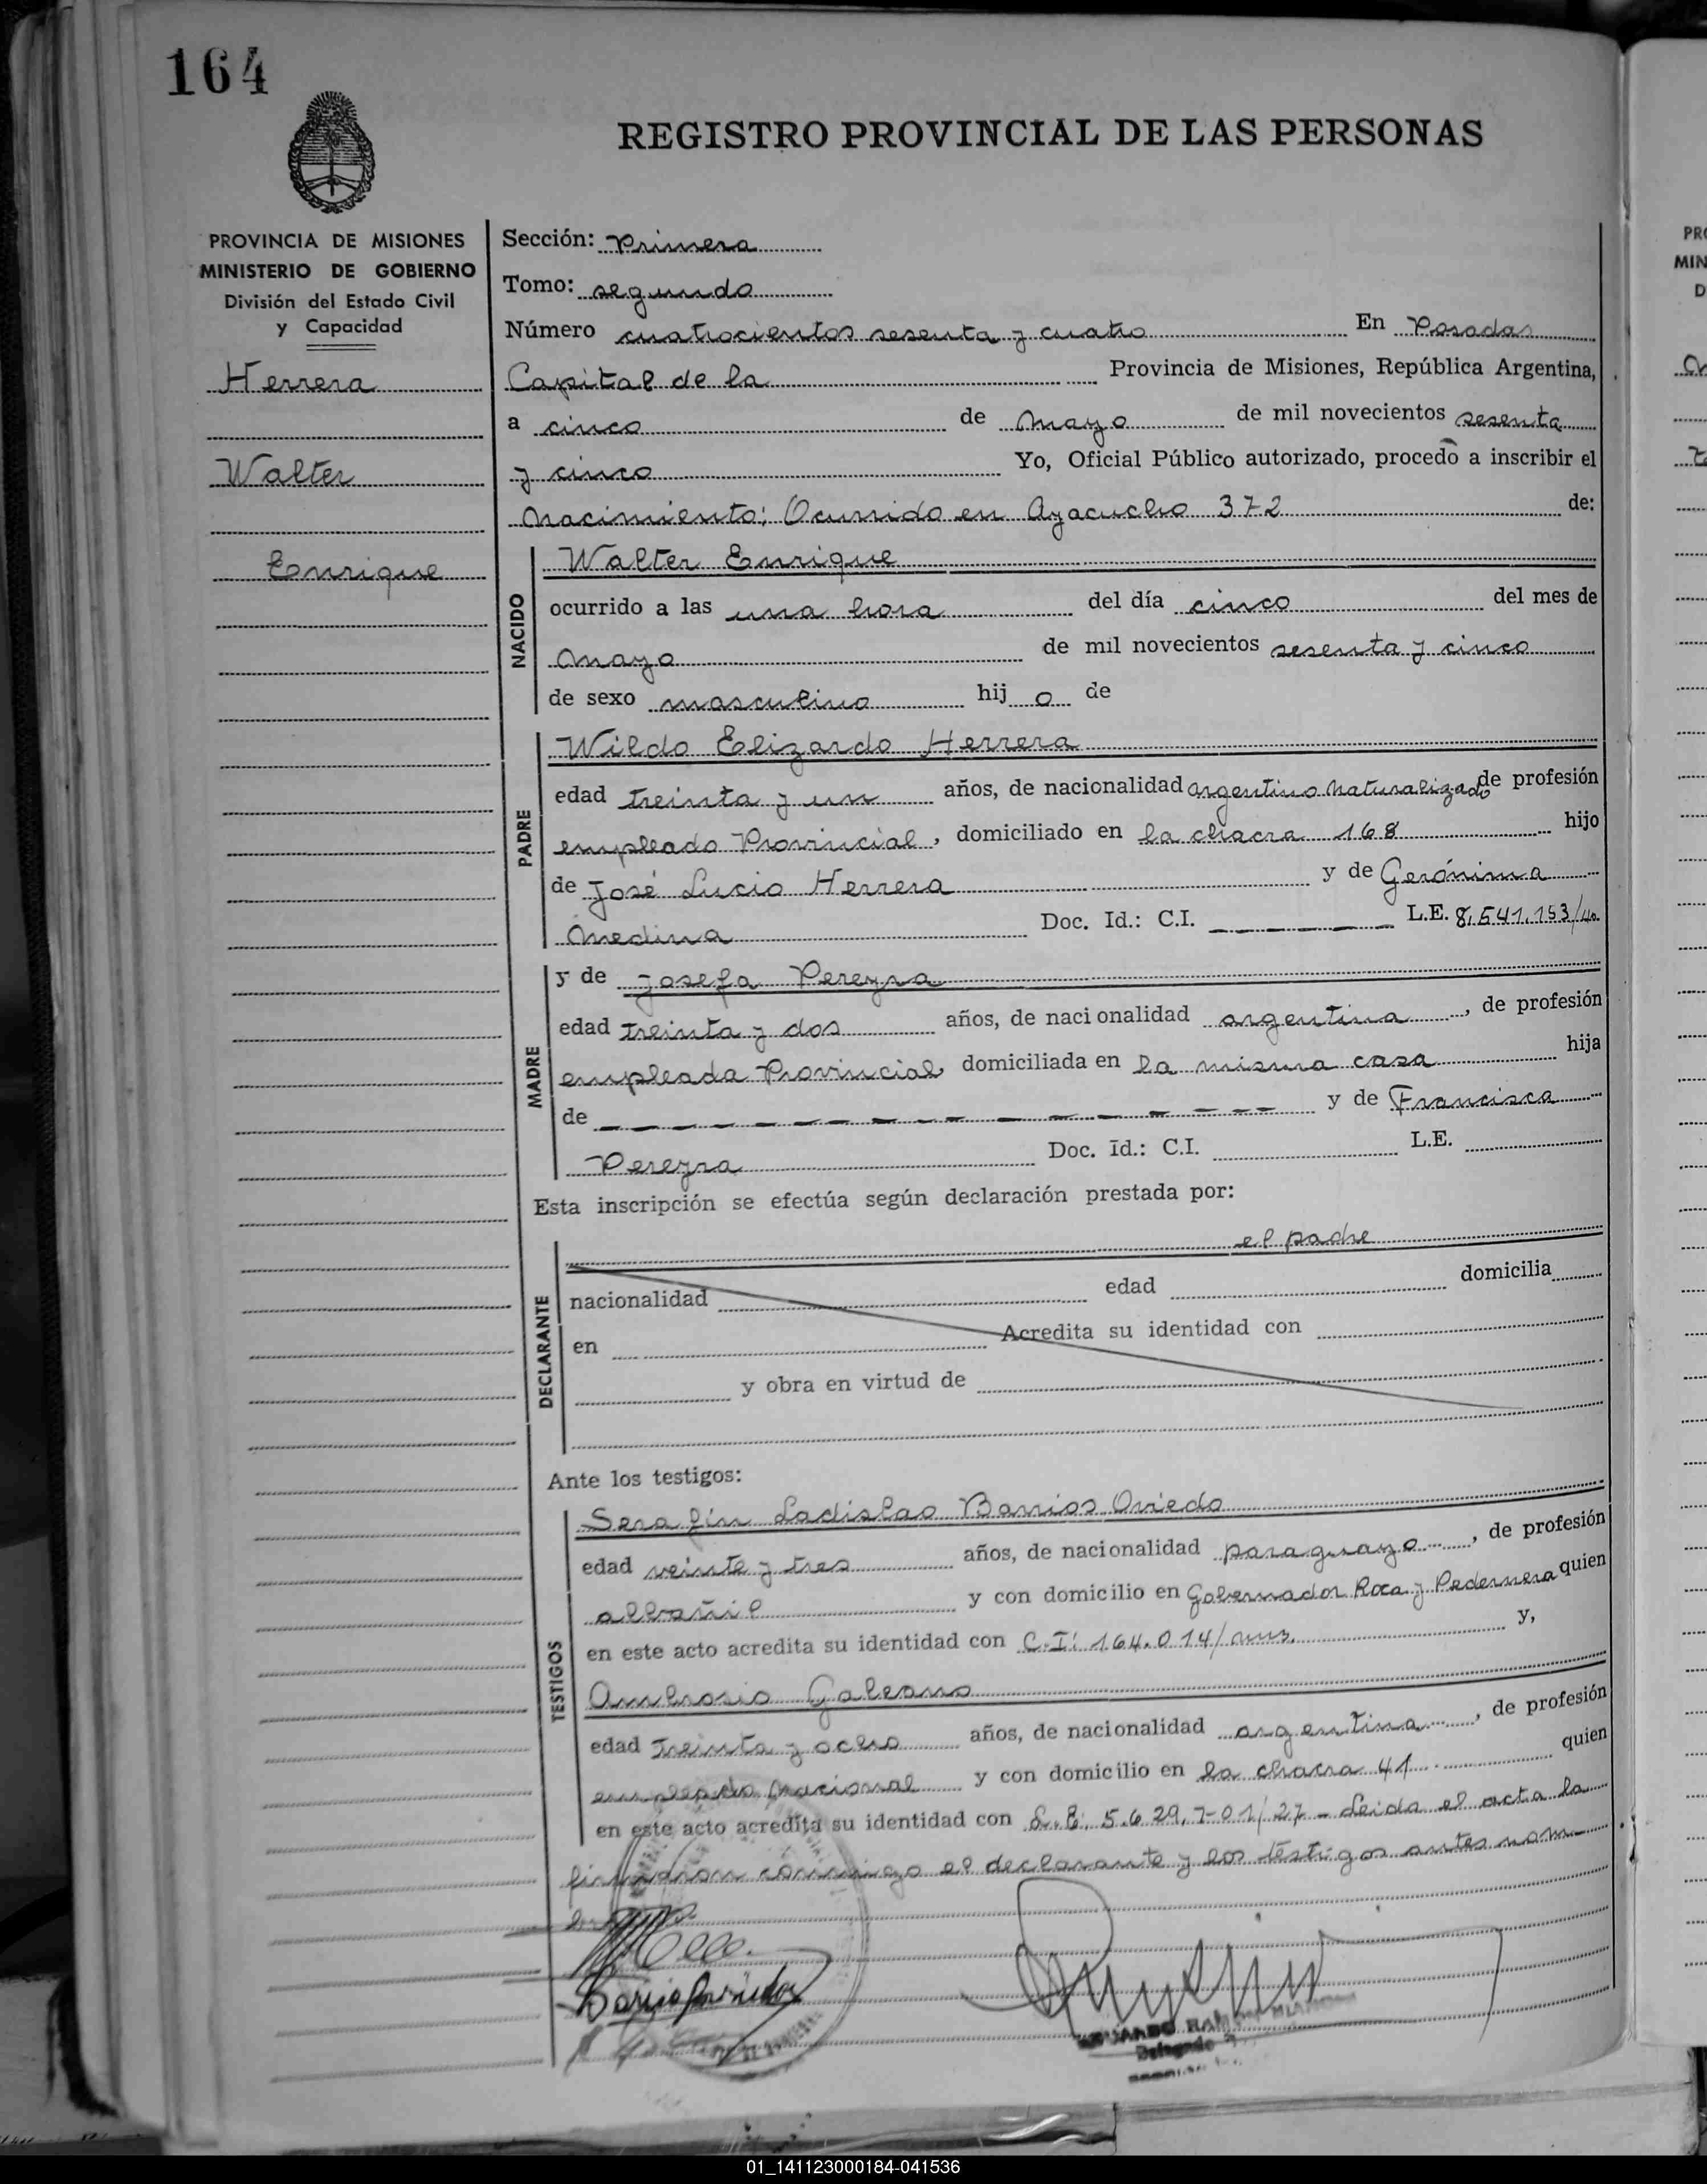 164
REGISTRO PROVINCIAL DE LAS PERSONAS
PROVINCIA DE MISIONES
MINISTERIO DE GOBIERNO
División del Estado Civil
y Capacidad
Herrera
Walter
Enrique
Sección: Primera
Tomo: segundo
Número cuatrocientos sesenta y cuatro En Posadas
Capital de la Provincia de Misiones, República Argentina,
a cinco de mayo de mil novecientos sesenta
y cinco Yo, Oficial Público autorizado, procedo a inscribir el
nacimiento: Ocurrido en Ayacucho 372 de:
NACIDO
Walter Enrique
ocurrido a las una hora del día cinco del mes de
mayo de mil novecientos sesenta y cinco
de sexo masculino hij o de
PADRE
Wildo Elizardo Herrera
edad treinta y un años, de nacionalidad argentino naturalizado de profesión
empleado Provincial, domiciliado en la chacra 168 hijo
de José Lucio Herrera y de Gerónima
Medina Doc. Id.: C.I. — — — — — L.E. 8.541.153/
MADRE
y de Josefa Pereyra
edad treinta y dos años, de nacionalidad argentina, de profesión
empleada Provincial, domiciliada en la misma casa hija
de — — — — — — — — — — y de Francisca
Pereyra Doc. Id.: C.I. L.E.
Esta inscripción se efectúa según declaración prestada por:
DECLARANTE
el padre
nacionalidad edad domicilia
en Acredita su identidad con
y obra en virtud de
Ante los testigos:
TESTIGOS
Serafín Ladislao Barrios Oviedo
edad veinte y tres años, de nacionalidad paraguayo, de profesión
albañil y con domicilio en Gobernador Roca y Pedernera quien
en este acto acredita su identidad con C.I: 164.014/mns. y,
Ambrosio Galeano
edad treinta y ocho años, de nacionalidad argentina, de profesión
empleado Nacional y con domicilio en la chacra 41 quien
en este acto acredita su identidad con L.E. 5.629.701/27 - Leida el acta la
firmaron conmigo el declarante y los testigos antes nom-
Delegado
01_141123000184-041536